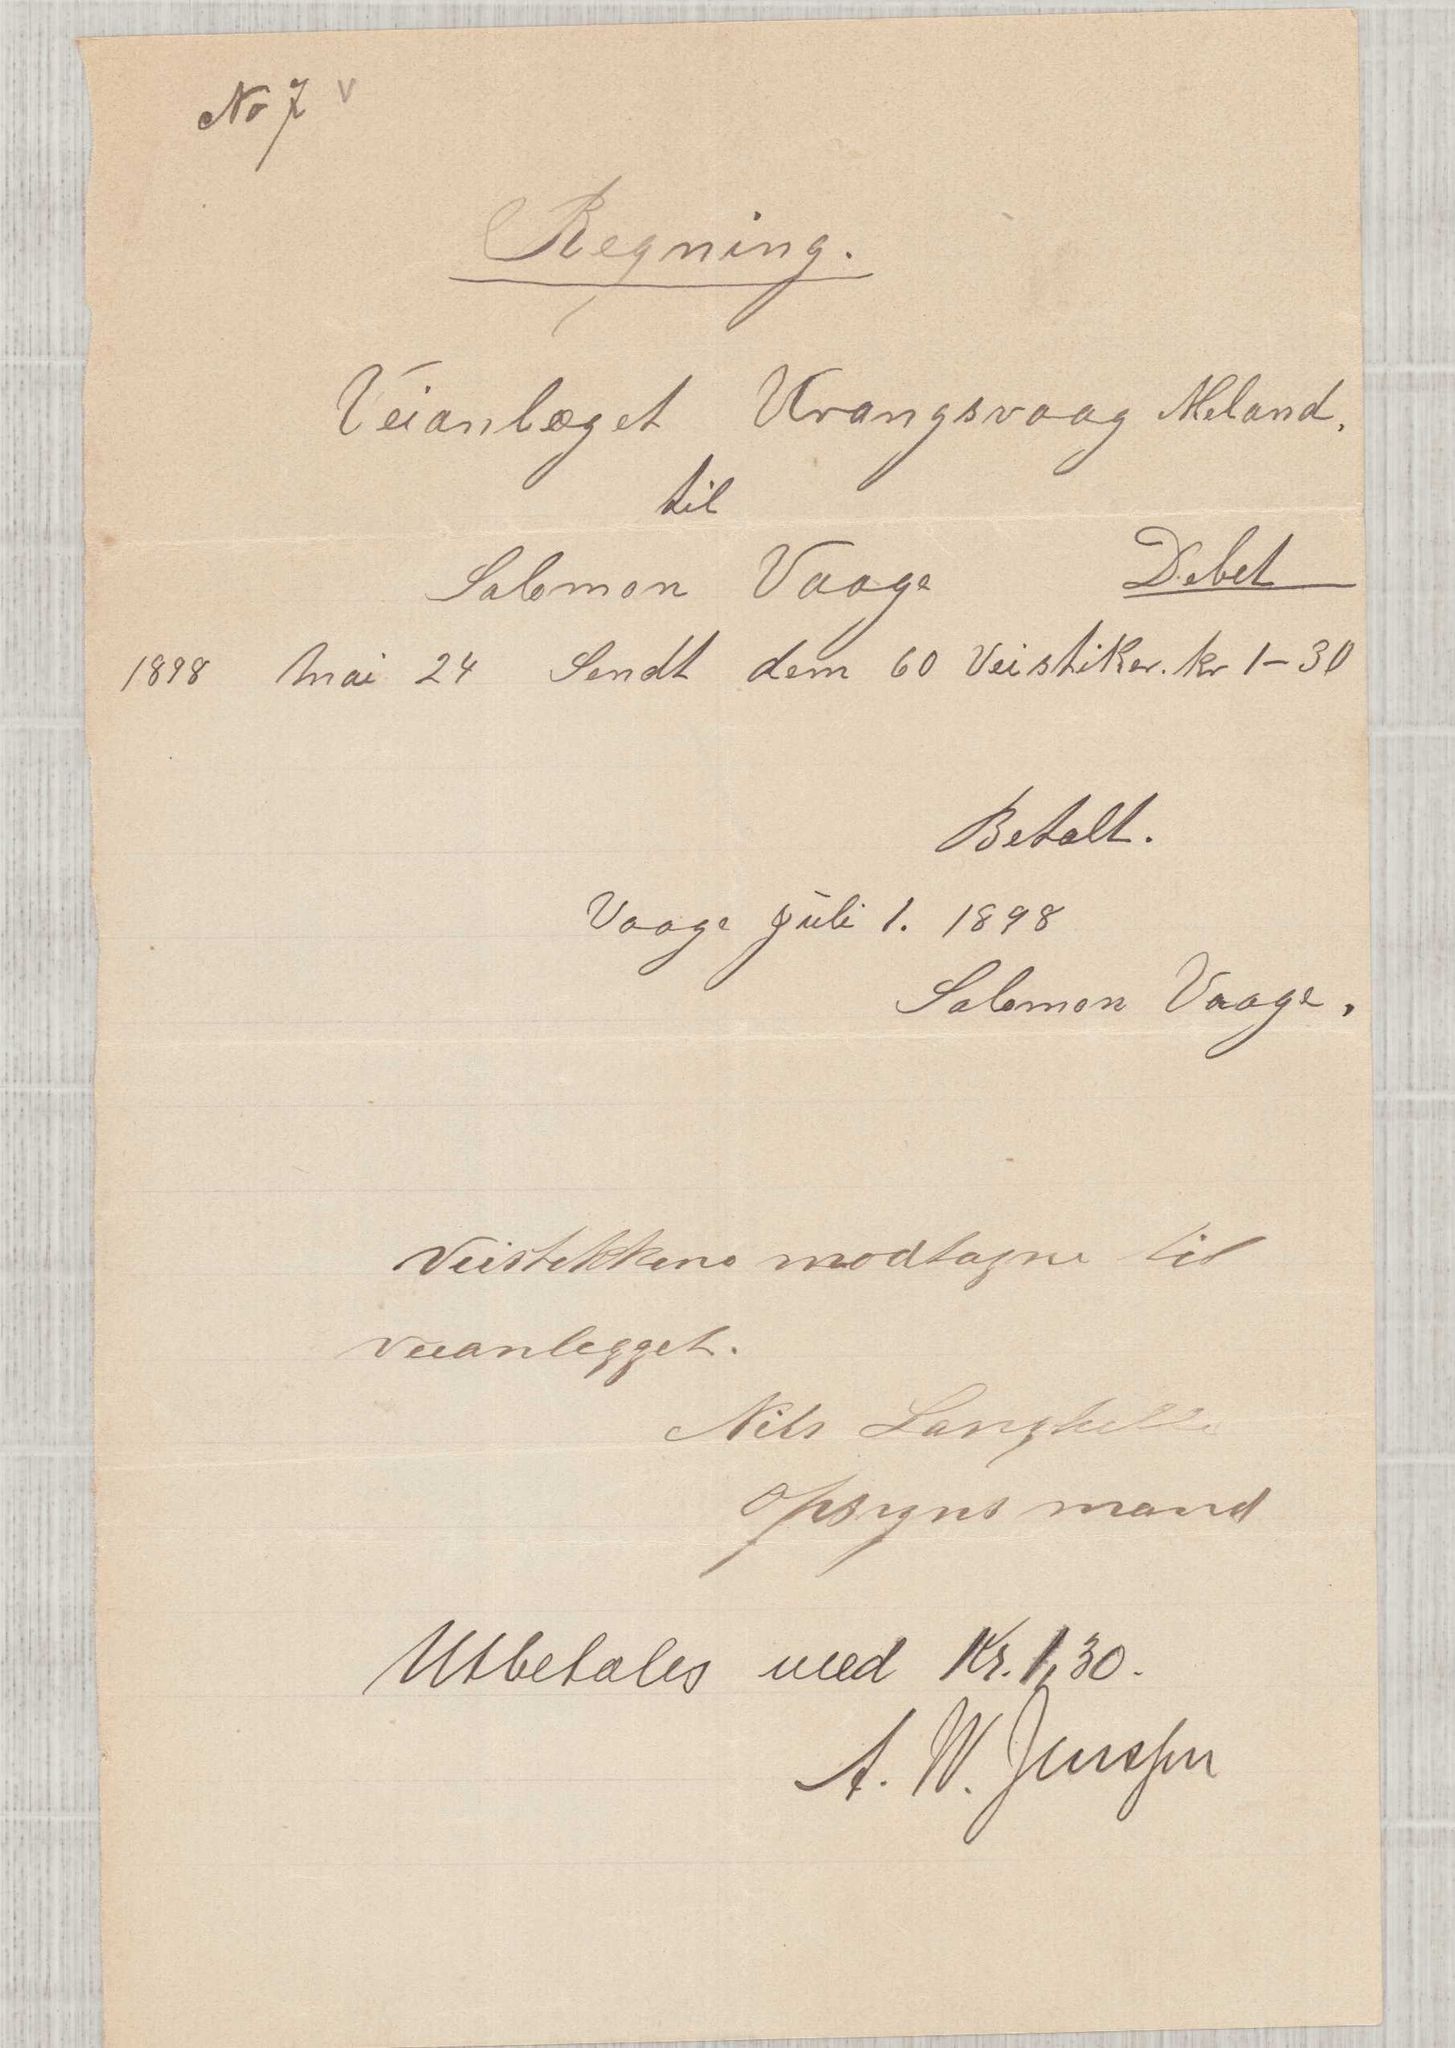 No 7 v
Regning.
Veianlæget Vrangsvaag Meland.
til
Salomon Vaage Debet
1898 Mai 24 Sendt dem 60 Veistiker. kr 1-30
Betalt.
Vaage Juli 1. 1898
Salomon Vaage.
Veistikkene modtagne til
veianlegget.
Nils Langhelle
Opsynsmand
Utbetales med Kr. 1,30.
A. W. Jenssen